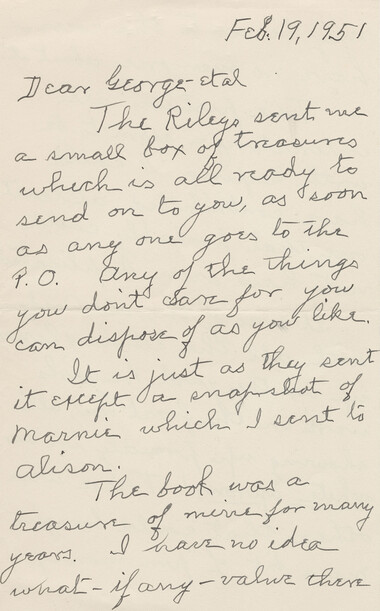 Feb. 19, 1951
Dear George - et al
The Rileys sent me
a small box of treasures
which is all ready to
send on to you, as soon
as any one goes to the
P.O. Any of the things
you don't care for you
can dispose of as you like.
It is just as they sent
it except a snap-shot of
Marnie which I sent to
Alison.
The book was a
treasure of mine for many
years. I have no idea
what - if any - value there